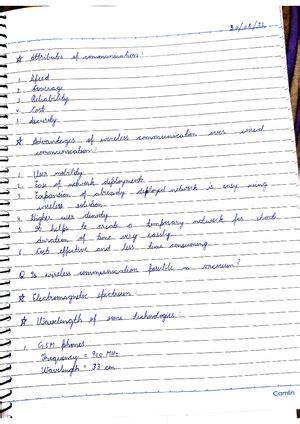 ☆ Attributes of communication :
1. Speed
2. Coverage
3. Reliability
4. Cost
5. Security
☆ Advantages of wireless communication over wired
communication :
1. User mobility
2. Ease of network deployment
3. Expansion of already deployed network is easy using
wireless solution.
4. Higher user density
5. It helps to create a temporary network for short
duration of time very easily.
6. Cost effective and less time consuming.
Q. Is wireless communication possible in vacuum?
☆ Electromagnetic spectrum :
☆ Wavelength of some technologies :
1. GSM phones
Frequency = 900 MHz
Wavelength = 33 cm
Camlin